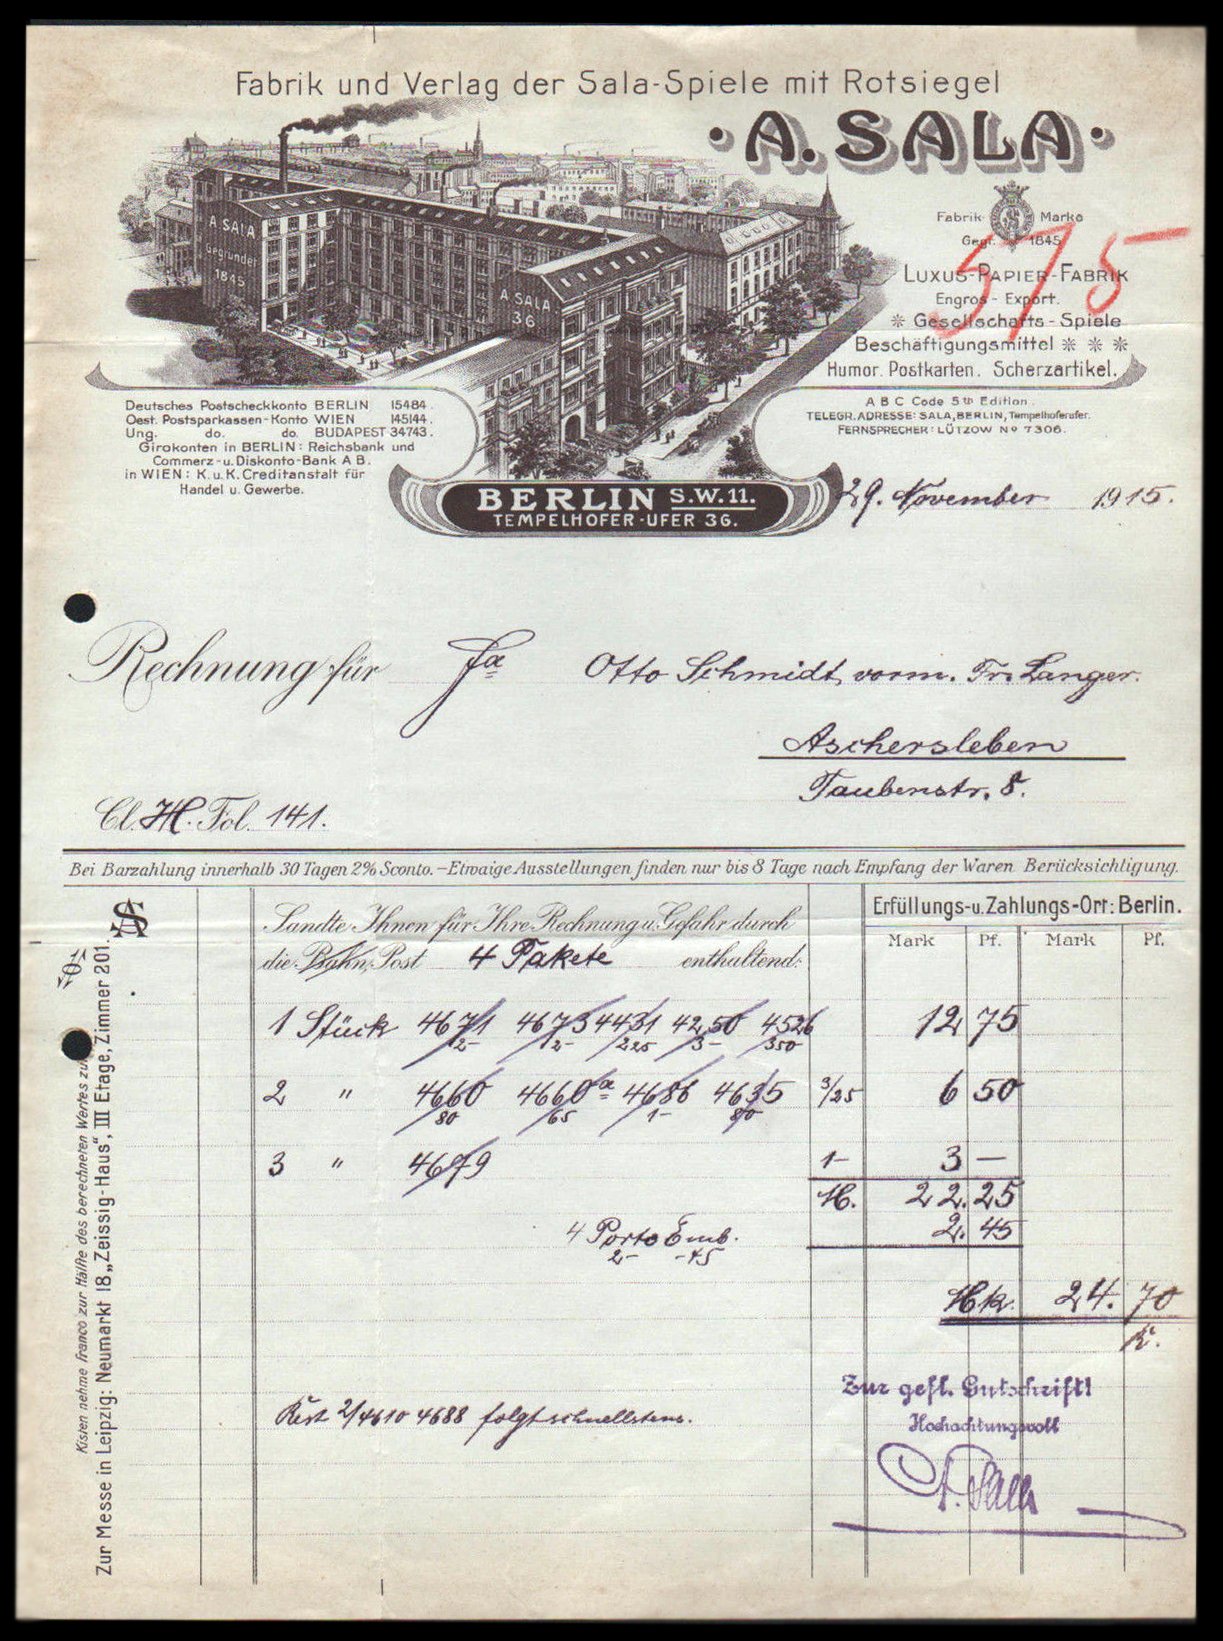 Fabrik und Verlag der Sala-Spiele mit Rotsiegel
A. SALA
A SALA
Gegründet
1845
A SALA
36
Fabrik Marke
Gegr. 1845
575
LUXUS-PAPIER-FABRIK
Engros - Export.
Gesellschafts - Spiele
Beschäftigungsmittel
Humor. Postkarten. Scherzartikel.
Deutsches Postscheckkonto BERLIN 15484.
Oest. Postsparkassen-Konto WIEN 145144.
Ung. do. do. BUDAPEST 34743.
Girokonten in BERLIN: Reichsbank und
Commerz-u. Diskonto-Bank A B.
in WIEN: K. u. K. Creditanstalt für
Handel u. Gewerbe.
A B C Code 5th Edition.
TELEGR. ADRESSE: SALA, BERLIN, Tempelhoferufer.
FERNSPRECHER: LÜTZOW No 7306.
BERLIN S.W. 11.
TEMPELHOFER-UFER 36.
29. November 1915.
Rechnung für Fa Otto Schmidt, vorm. Fr. Langer.
Aschersleben
Taubenstr. 8.
Cl. H. Fol. 141.
Bei Barzahlung innerhalb 30 Tagen 2% Sconto. – Etwaige Ausstellungen finden nur bis 8 Tage nach Empfang der Waren Berücksichtigung.
AS
Sandte Ihnen für Ihre Rechnung u. Gefahr durch
die Bahn, Post 4 Pakete enthaltend:
Erfüllungs-u. Zahlungs-Ort: Berlin.
Mark Pf. Mark Pf.
1 Stück 4671 4673 4431 4250 4526 12 75
2- 2- 225 3- 350
2 " 4660 4660a 4686 4635 3/25 6 50
80 65 1- 80
3 " 4679 1- 3 —
M. 22.25
4 Porto Emb. 2. 45
2- -45
Mk. 24. 70
Rest 2/4610 4688 folgt schnellstens.
Zur gefl. Gutschrift!
Hochachtungsvoll
A. Sala
Kisten nehme franco zur Hälfte des berechneten Wertes zu
Zur Messe in Leipzig: Neumarkt 18, „Zeissig-Haus“, III Etage, Zimmer 201.